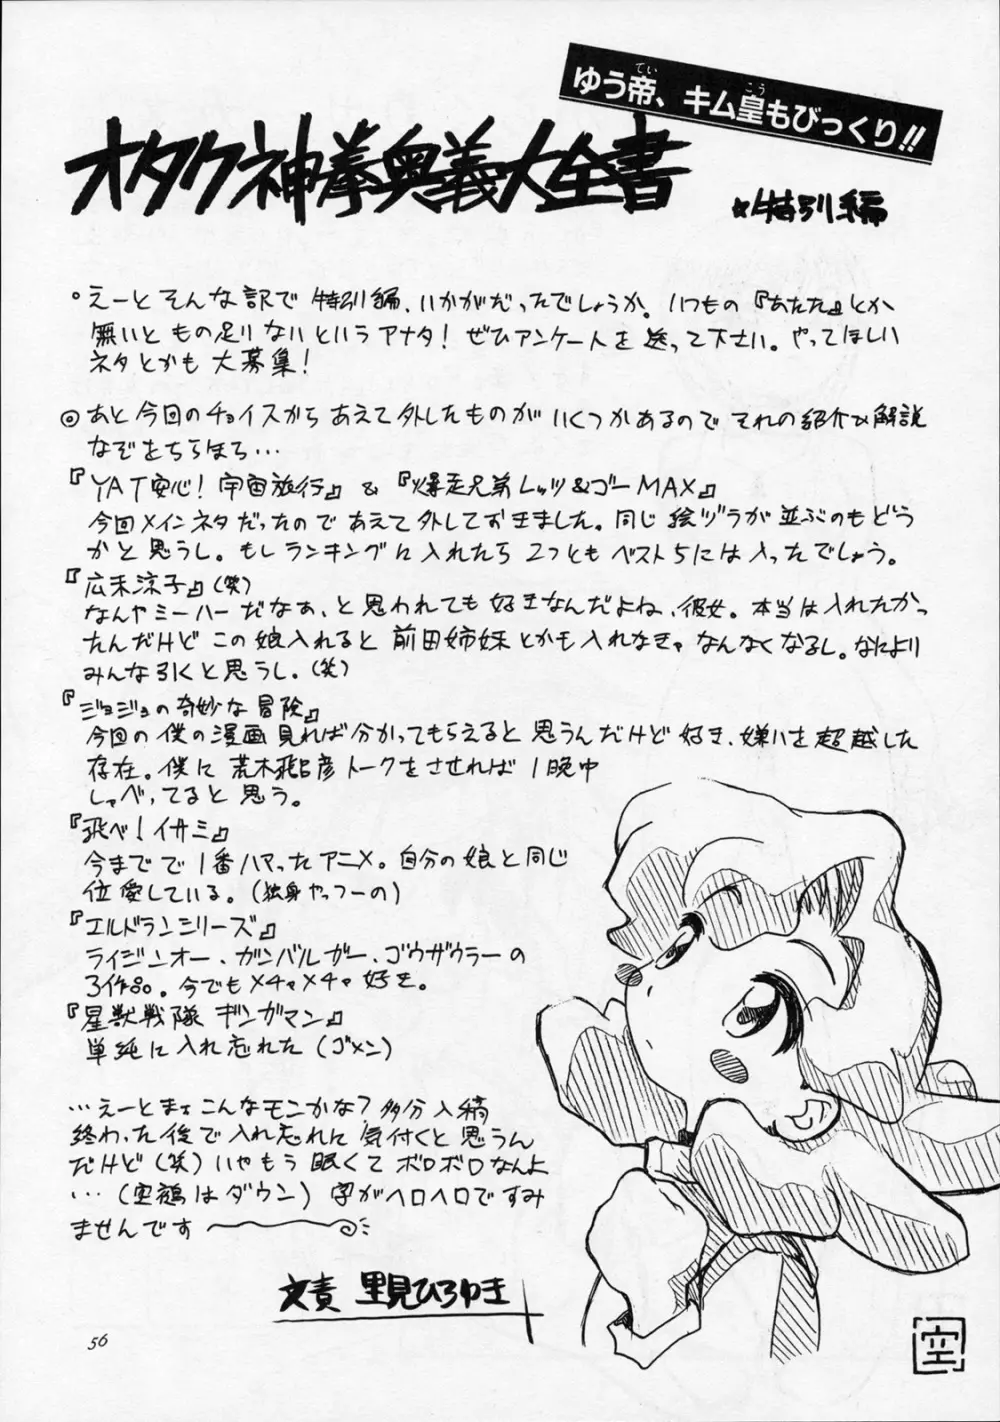 ゆう帝、キム皇もびっくり!!
オタク神拳奥義大全書
★特別編
。えーとそんな訳で特別編、いかがだったでしょうか。いつもの『あたた』とか
無いともの足りないというアナタ！ぜひアンケートを送って下さい。やってほしい
ネタとかも大募集！
◎あと今回のチョイスからあえて外したものがいくつかあるのでそれの紹介&解説
なぞをちらほら…
『YAT安心！宇宙旅行』&『爆走兄弟レッツ&ゴーMAX』
今回メインネタだったのであえて外しておきました。同じ絵ヅラが並ぶのもどう
かと思うし。もしランキングに入れたら2つともベスト5には入ったでしょう。
『広末涼子』(笑)
なんやミーハーだなぁ、と思われても好きなんだよね、彼女。本当は入れたかっ
たんだけどこの娘入れると前田姉妹とかも入れなきゃなんなくなるし。なにより
みんな引くと思うし。(笑)
『ジョジョの奇妙な冒険』
今回の僕の漫画見れば分かってもらえると思うんだけど好き、嫌いを超越した
存在。僕に荒木飛呂彦トークをさせれば1晩中
しゃべってると思う。
『飛べ！イサミ』
今までで1番ハマったアニメ。自分の娘と同じ
位愛している。(独身やっつーの)
『エルドランシリーズ』
ライジンオー、ガンバルガー、ゴウザウラーの
3作品。今でもメチャメチャ好き。
『星獣戦隊ギンガマン』
単純に入れ忘れた(ゴメン)
…えーとまぁこんなモンかな？多分入稿
終わった後で入れ忘れに気付くと思うん
だけど(笑)いやもう眠くてボロボロなんよ
…(空鶴はダウン)字がヘロヘロですみ
ませんです
文責 里見ひろゆき
56
空